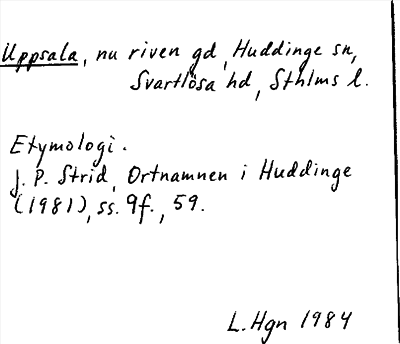 Uppsala, nu riven gd, Huddinge sn,
Svartlösa hd, Sthlms l.
Etymologi.
J. P. Strid, Ortnamnen i Huddinge
(1981), ss. 9f., 59.
L. Hgn 1984